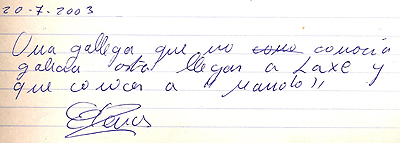 20-7-2003
Una gallega que no como conocia
galicia asta llegar a Laxe y
que conoces a "Manolo"